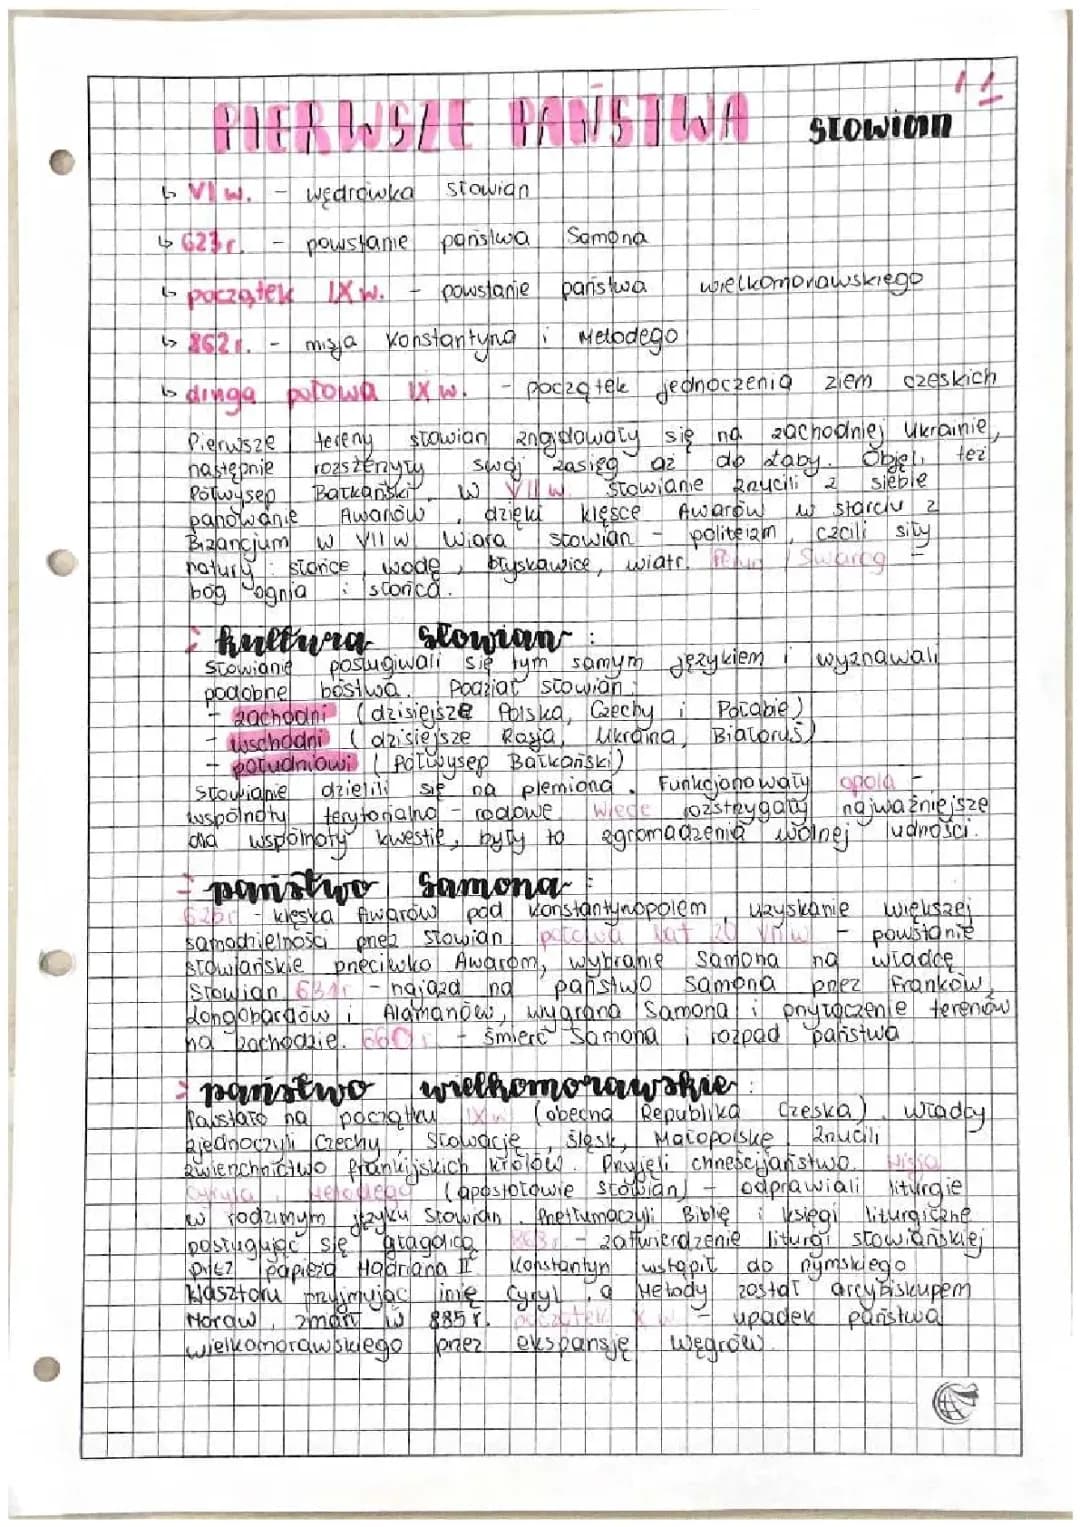 11
PIERWSZE PAŃSTWA Słowian
↳ VI w. - wędrówka słowian
↳ 623 r. - powstanie państwa Samona
↳ początek IX w. - powstanie państwa wielkomorawskiego
↳ 862 r. - misja Konstantyna i Metodego
↳ druga połowa IX w. - początek jednoczenia ziem czeskich
Pierwsze tereny słowian znajdowały się na zachodniej Ukrainie,
następnie rozszerzyły swój zasięg aż do Łaby. Objęli też
Półwysep Bałkański. W VII w. Słowianie zrzucili z siebie
panowanie Awarów, dzięki klęsce Awarów w starciu z
Bizancjum w VII w. Wiara słowian - politeizm, czcili siły
natury: słońce, wodę, błyskawice, wiatr. Perun, Swaróg -
bóg ognia i słońca.
kultura Słowian:
Słowianie posługiwali się tym samym językiem i wyznawali
podobne bóstwa. Podział słowian:
- zachodni (dzisiejsze Polska, Czechy i Połabie)
- wschodni (dzisiejsze Rosja, Ukraina, Białoruś)
- południowi (Półwysep Bałkański)
Słowianie dzielili się na plemiona. Funkcjonowały opola -
wspólnoty terytorialno - rodowe. Wiece rozstrzygały najważniejsze
dla wspólnoty kwestie, były to zgromadzenia wolnej ludności.
państwo Samona:
626 r. - klęska Awarów pod Konstantynopolem, uzyskanie większej
samodzielności przez Słowian, połowa lat 20 VII w - powstanie
słowiańskie przeciwko Awarom, wybranie Samona na władcę
Słowian. 631 r. - najazd na państwo Samona przez Franków,
Longobardów i Alamanów, wygrana Samona i przyłączenie terenów
na zachodzie. 660 r. - śmierć Samona i rozpad państwa
państwo wielkomorawskie:
Powstało na początku IX w. (obecna Republika Czeska). Władcy
zjednoczyli Czechy, Słowację, Śląsk, Małopolskę. Zrzucili
zwierzchnictwo frankijskich królów. Przyjęli chrześcijaństwo. Misja
Cyryla i Metodego (apostołowie Słowian) - odprawiali liturgie
w rodzimym języku Słowian. Przetłumaczyli Biblię i księgi liturgiczne
posługując się głagolicą. 868 r. - zatwierdzenie liturgi słowiańskiej
przez papieża Hadriana II. Konstantyn wstąpił do rzymskiego
klasztoru przyjmując imię Cyryl, a Metody został arcybiskupem
Moraw, zmarł w 885 r. początek X w - upadek państwa
wielkomorawskiego przez ekspansję Węgrów.